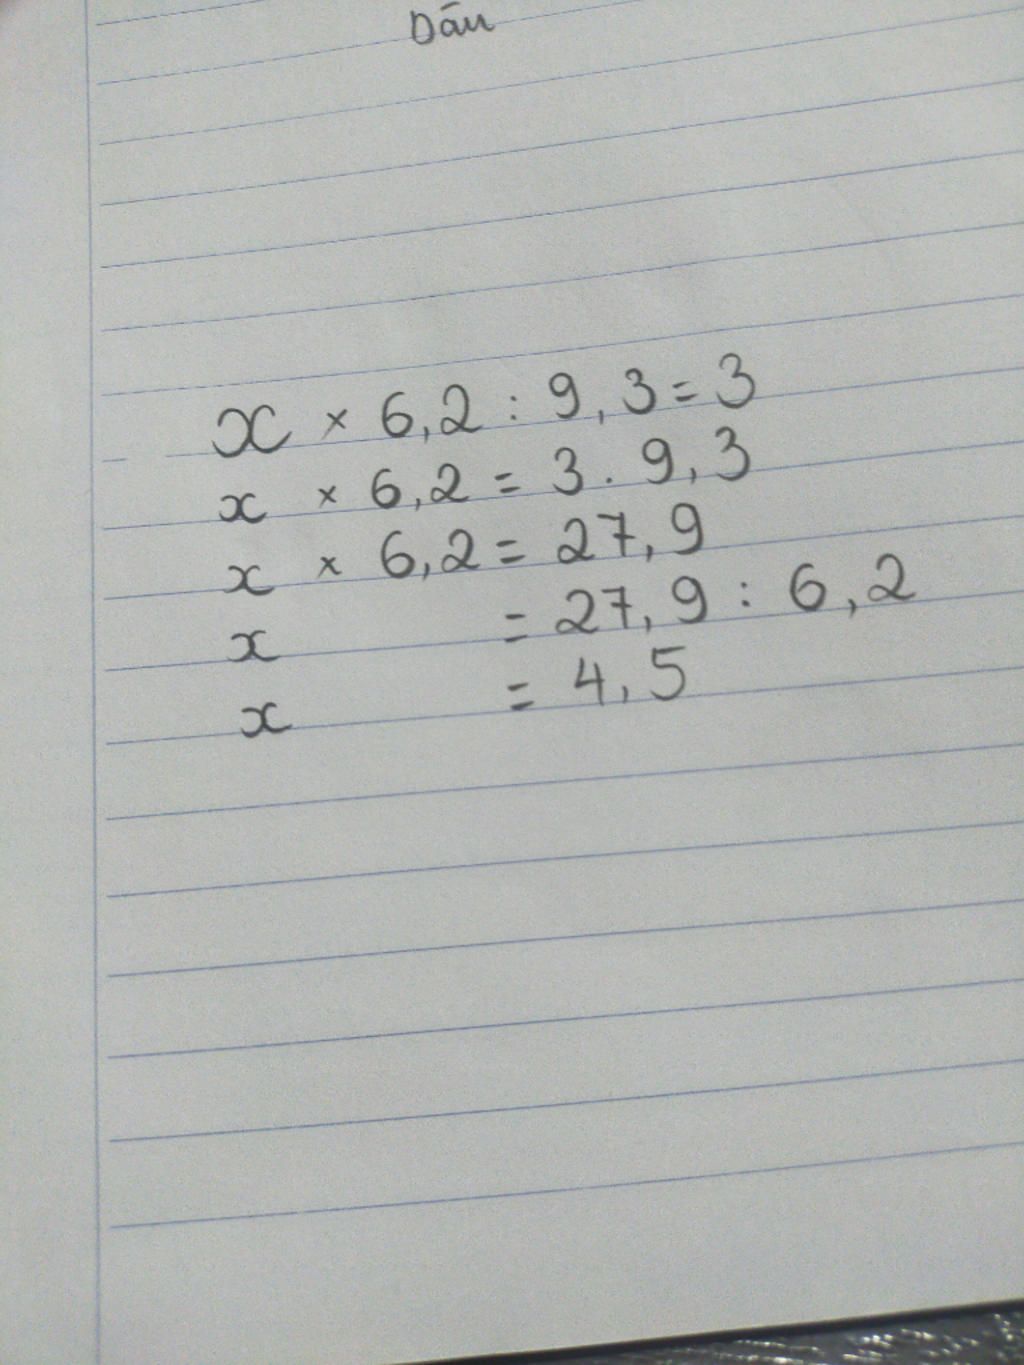 Dấu
x × 6,2 : 9,3 = 3
x × 6,2 = 3 . 9,3
x × 6,2 = 27,9
x = 27,9 : 6,2
x = 4,5